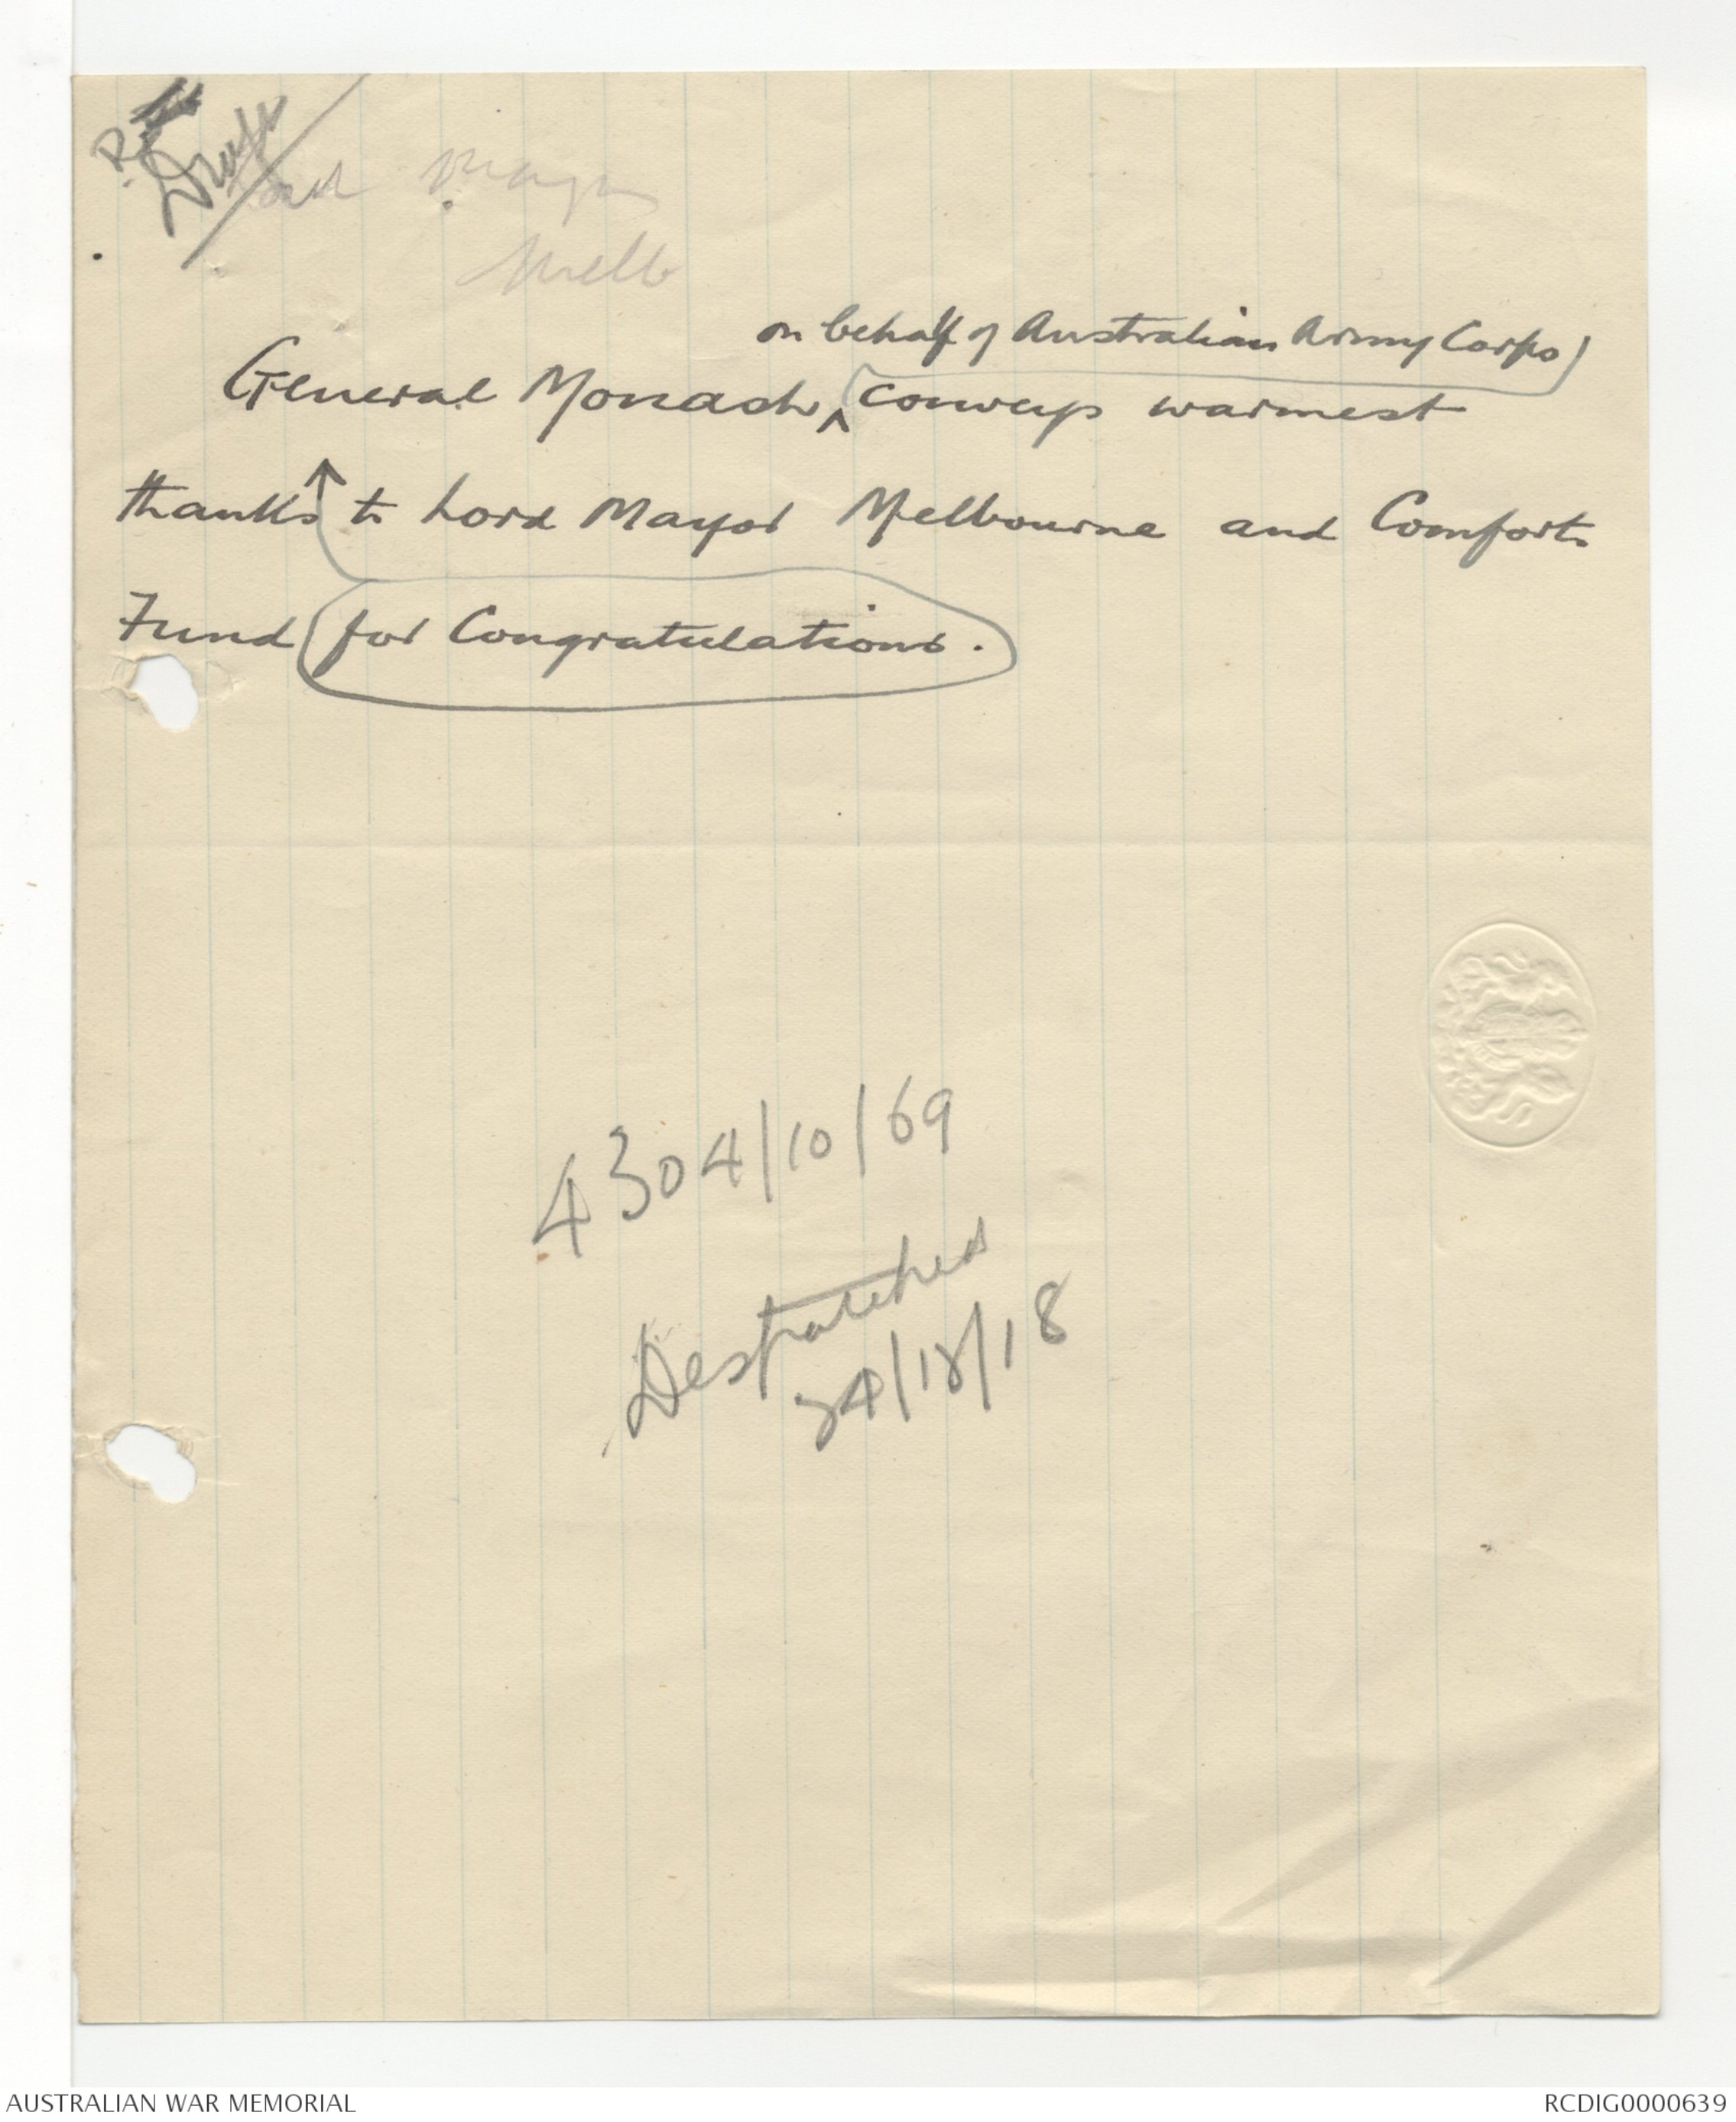 Draft
Lord Mayor
Melb
on behalf of Australian Army Corps
General Monash, conveys warmest
thanks to Lord Mayor Melbourne and Comforts
Fund for Congratulations.
4304/10/69
Despatched
AUSTRALIAN WAR MEMORIAL
RCDIG0000639